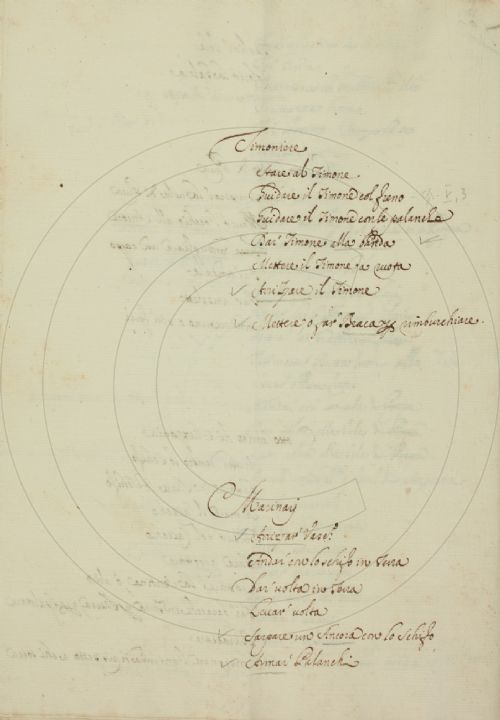 Timoniere
Stare al Timone.
Guidare il Timone col freno
Guidare il Timone con le palanche
Dar' Timone alla banda
Mettere il Timone a ruota
il Timone
Mettere ò far' Braca rimburchiare.
Marinari
Andar' con lo schifo in Terra
Dar' volta in Terra
Levar' volta
Sarpare un Ancora con lo schifo
Armar' Palanchi